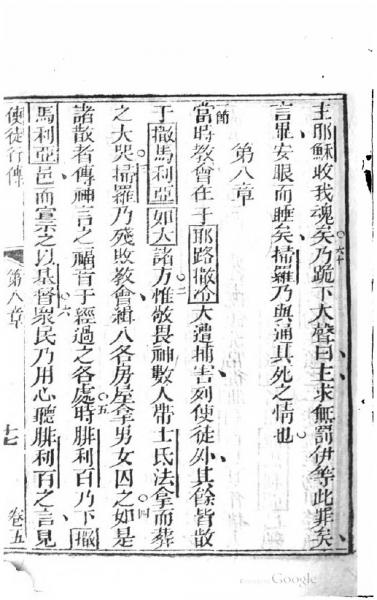 主耶穌收我魂矣乃跪下大聲曰主求無罰伊等此罪矣
六十
言畢安眼而睡矣掃羅乃與通其死之情也
第八章
一節
當時教會在于耶路撒冷大遭捕害列使徒外其餘皆散
于撒馬利亞如大諸方惟敬畏神數人帶士氐法拿而葬
二
之大哭掃羅乃殘敗教會緝入各房屋拿男女囚之如是
三
四
諸散者傳神言之福音于經過之各處時腓利百乃下撒
五
馬利亞邑而宣示之以基督眾民乃用心聽腓利百之言見
六
使徒行傳
第八章
十七
卷五
Google